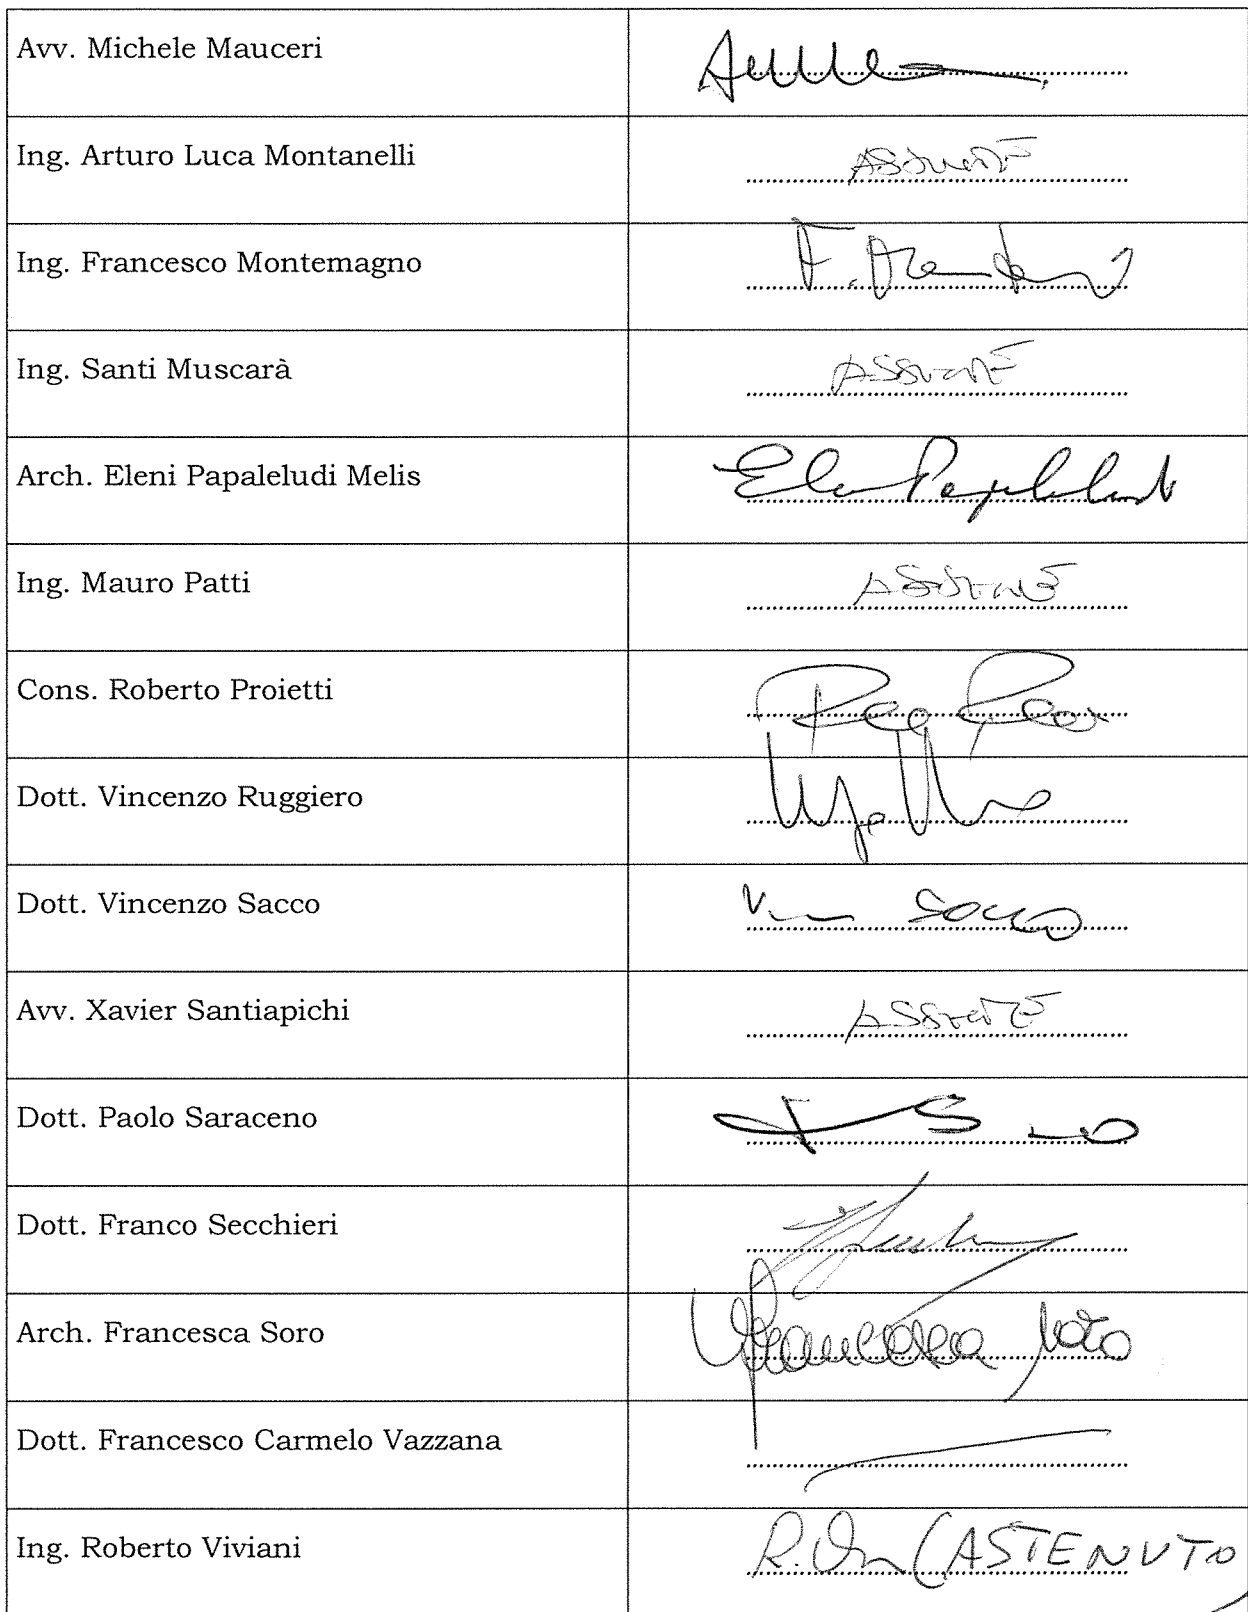 Avv. Michele Mauceri
Ing. Arturo Luca Montanelli ASSENTE
Ing. Francesco Montemagno
Ing. Santi Muscarà ASSENTE
Arch. Eleni Papaleludi Melis
Ing. Mauro Patti ASSENTE
Cons. Roberto Proietti
Dott. Vincenzo Ruggiero
Dott. Vincenzo Sacco
Avv. Xavier Santiapichi ASSENTE
Dott. Paolo Saraceno
Dott. Franco Secchieri
Arch. Francesca Soro Francesca Soro
Dott. Francesco Carmelo Vazzana
Ing. Roberto Viviani (ASTENUTO)